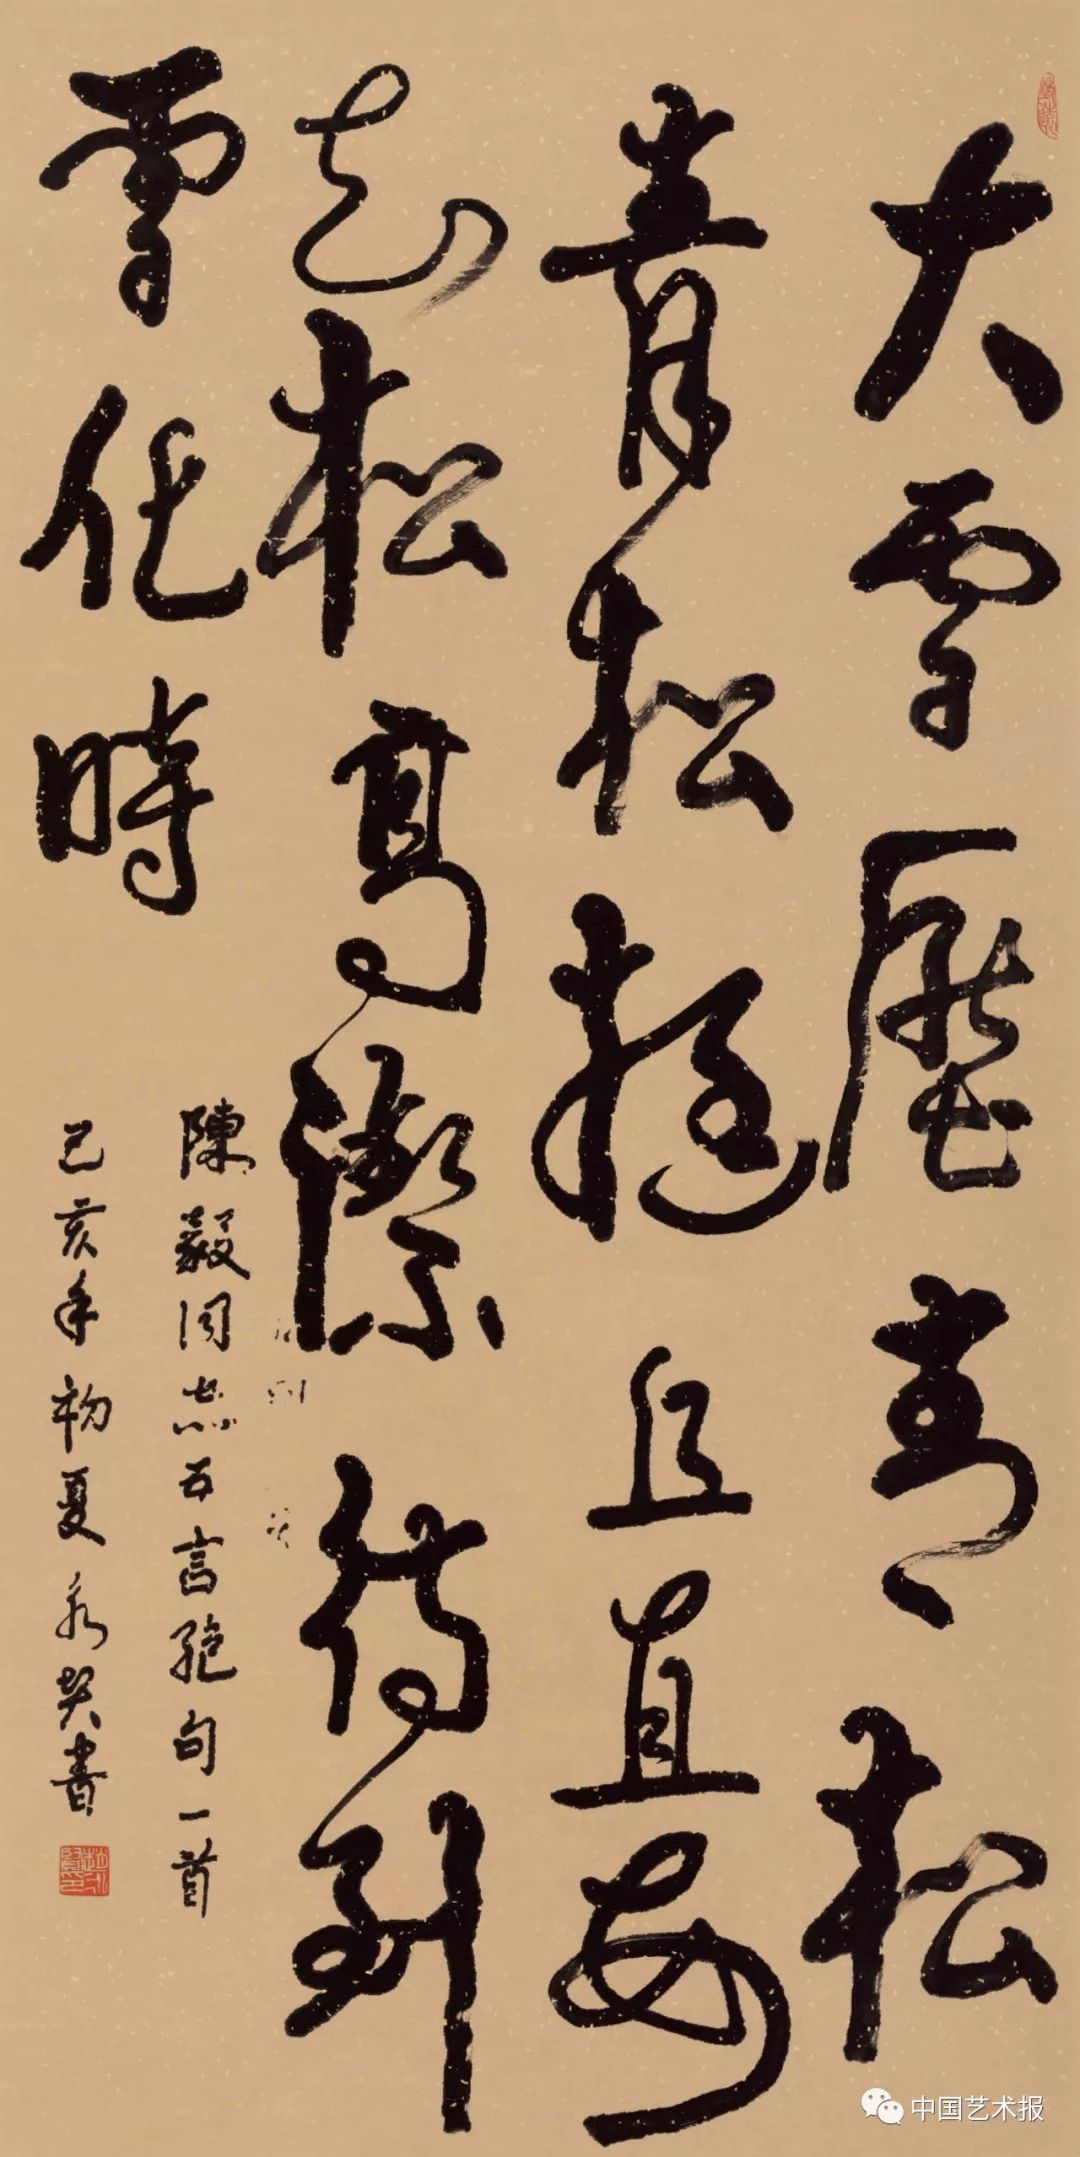 大雪壓青松
青松挺且直要
知松高潔待到
雪化時
陳毅同志五言絕句一首
己亥年初夏永賢書
中国艺术报